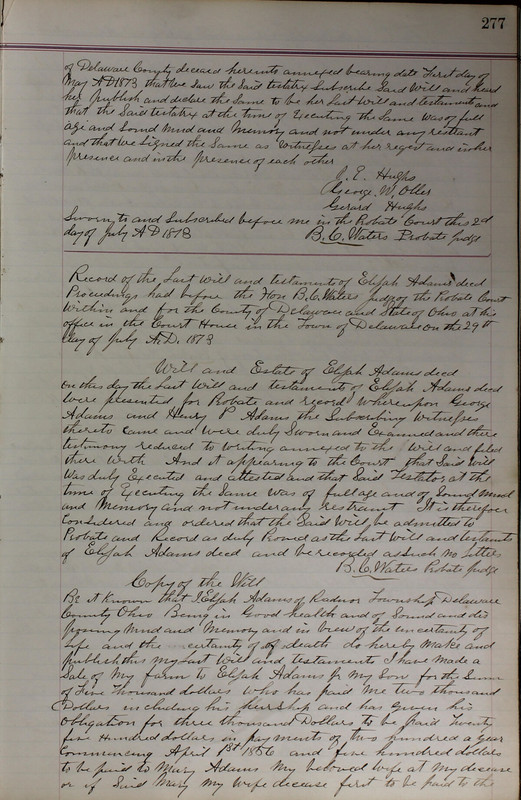 277
of Delaware County deceased hereunto annexed bearing date First day of
May A D 1873 that we saw the Said testatrix Subscribe Said Will and heard
her publish and declare the Same to be her Last Will and testament and
that the Said testatrix at the time of Executing the Same was of full
age and Sound Mind and Memory and not under any restraint
and that we Signed the Same as Witnesses at her request and in her
presence and in the presence of each other
J. E. Hughs
George. W. Oller
Gerard Hughs
Sworn to and Subscribed before me in the Probate Court this 2d
day of July A D 1873
B. C. Waters Probate Judge
Record of the Last Will and testament of Elijah Adams decd
Proceedings had before the Hon B. C. Waters Judge of the Probate Court
Within and for the County of Delaware and State of Ohio at his
office in the Court House in the Town of Delaware on the 29th
day of July A.D. 1873
Will and Estate of Elijah Adams decd
On this day the Last Will and testament of Elijah Adams decd
Were presented for Probate and record Whereupon George
Adams and Henry P Adams the Subscribing Witnesses
thereto Came and Were duly Sworn and Examined and there
testimony reduced to Writing annexed to the Will and filed
there With And it appearing to the Court that Said Will
Was duly Executed and attested and that Said Testator at the
time of Executing the Same Was of full age and of Sound Mind
and Memory and not under any restraint It is therefore
Considered and ordered that the Said Will be admitted to
Probate and Record as duly Proved as the Last Will and testament
of Elijah Adams decd and be recorded as Such
B. C. Waters Probate Judge
Copy of the Will
Be it Known that I Elijah Adams of Radnor Township Delaware
County Ohio Being in Good health and of Sound and dis
posing Mind and Memory and in View of the uncertainty of
Life and the certainty of death do hereby Make and
publish this my Last Will and testament I have Made a
Sale of My farm to Elijah Adams Jr My Son for the Sum
of Five Thousand dollars Who has paid Me two thousand
Dollars including his heirship and has given his
Obligation for three thousand Dollars to be paid Twenty
five Hundred dollars in payments of two hundred a year
Commencing April 1st 1856 and five hundred dollars
to be paid to Mary Adams My beloved Wife at My decease
or if Said Mary My Wife decease first to be paid to the